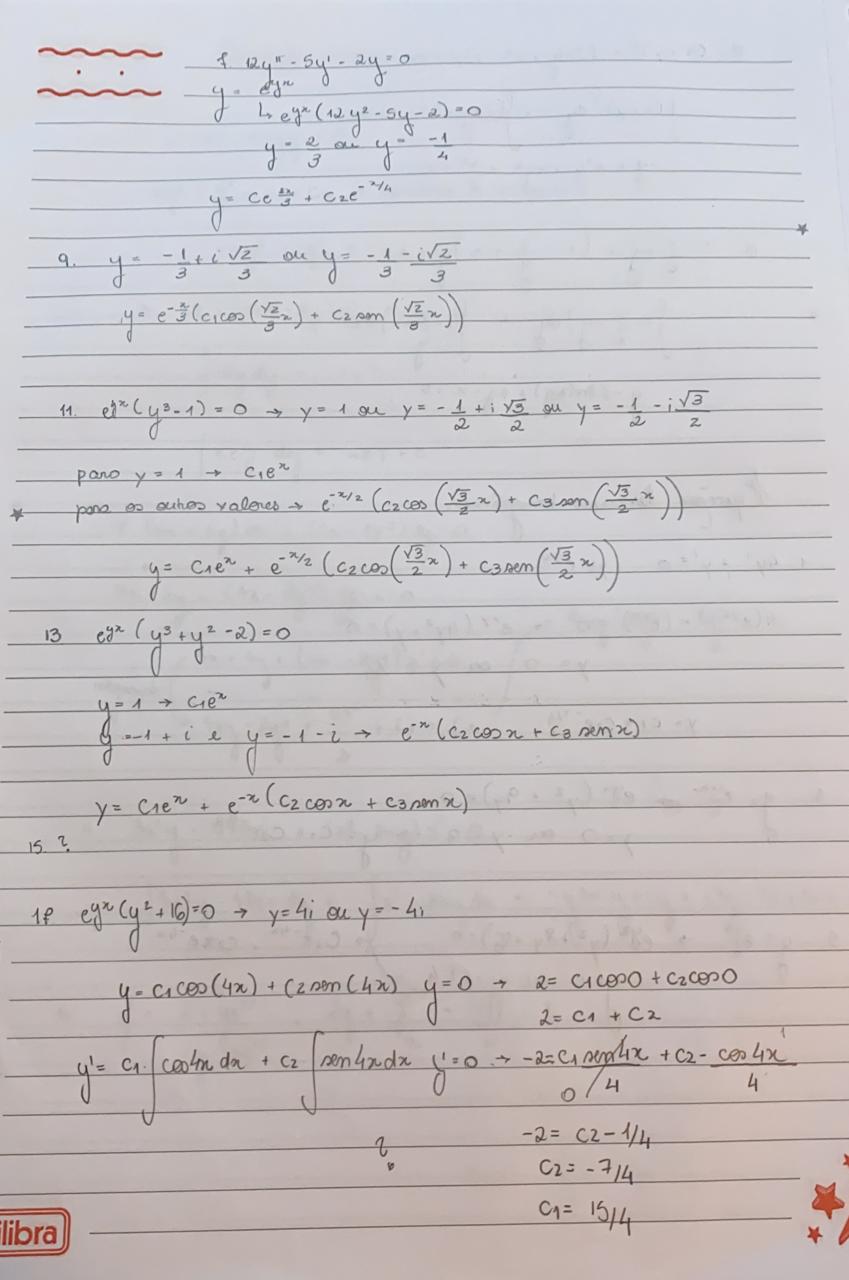 7. 12y" - 5y' - 2y = 0
y = e^yx
↳ e^yx (12y² - 5y - 2) = 0
y = 2/3 ou y = -1/4
y = ce^2x/3 + c2e^-x/4
9. y = -1/3 + i √2/3 ou y = -1/3 - i√2/3
y = e^-x/3 (c1cos(√2/3 x) + c2 sen(√2/3 x))
11. e^yx (y³ - 1) = 0 → y = 1 ou y = -1/2 + i √3/2 ou y = -1/2 - i √3/2
para y = 1 → c1e^x
para os outros valores → e^-x/2 (c2cos(√3/2 x) + c3sen(√3/2 x))
y = c1e^x + e^-x/2 (c2cos(√3/2 x) + c3sen(√3/2 x))
13 e^yx (y³ + y² - 2) = 0
y = 1 → c1e^x
y = -1 + i e y = -1 - i → e^-x (c2cosx + c3 senx)
y = c1e^x + e^-x (c2cosx + c3senx)
15. ?
17 e^yx (y² + 16) = 0 → y = 4i ou y = -4i
y = c1cos(4x) + c2sen(4x) y = 0 → 2 = c1cos0 + c2cos0
2 = c1 + c2
y' = c1 . ∫cos4x dx + c2 ∫sen4xdx y' = 0 → -2 = c1 sen4x/4 0 + c2 - cos4x/4 1
? -2 = c2 - 1/4
c2 = -7/4
c1 = 15/4
libra